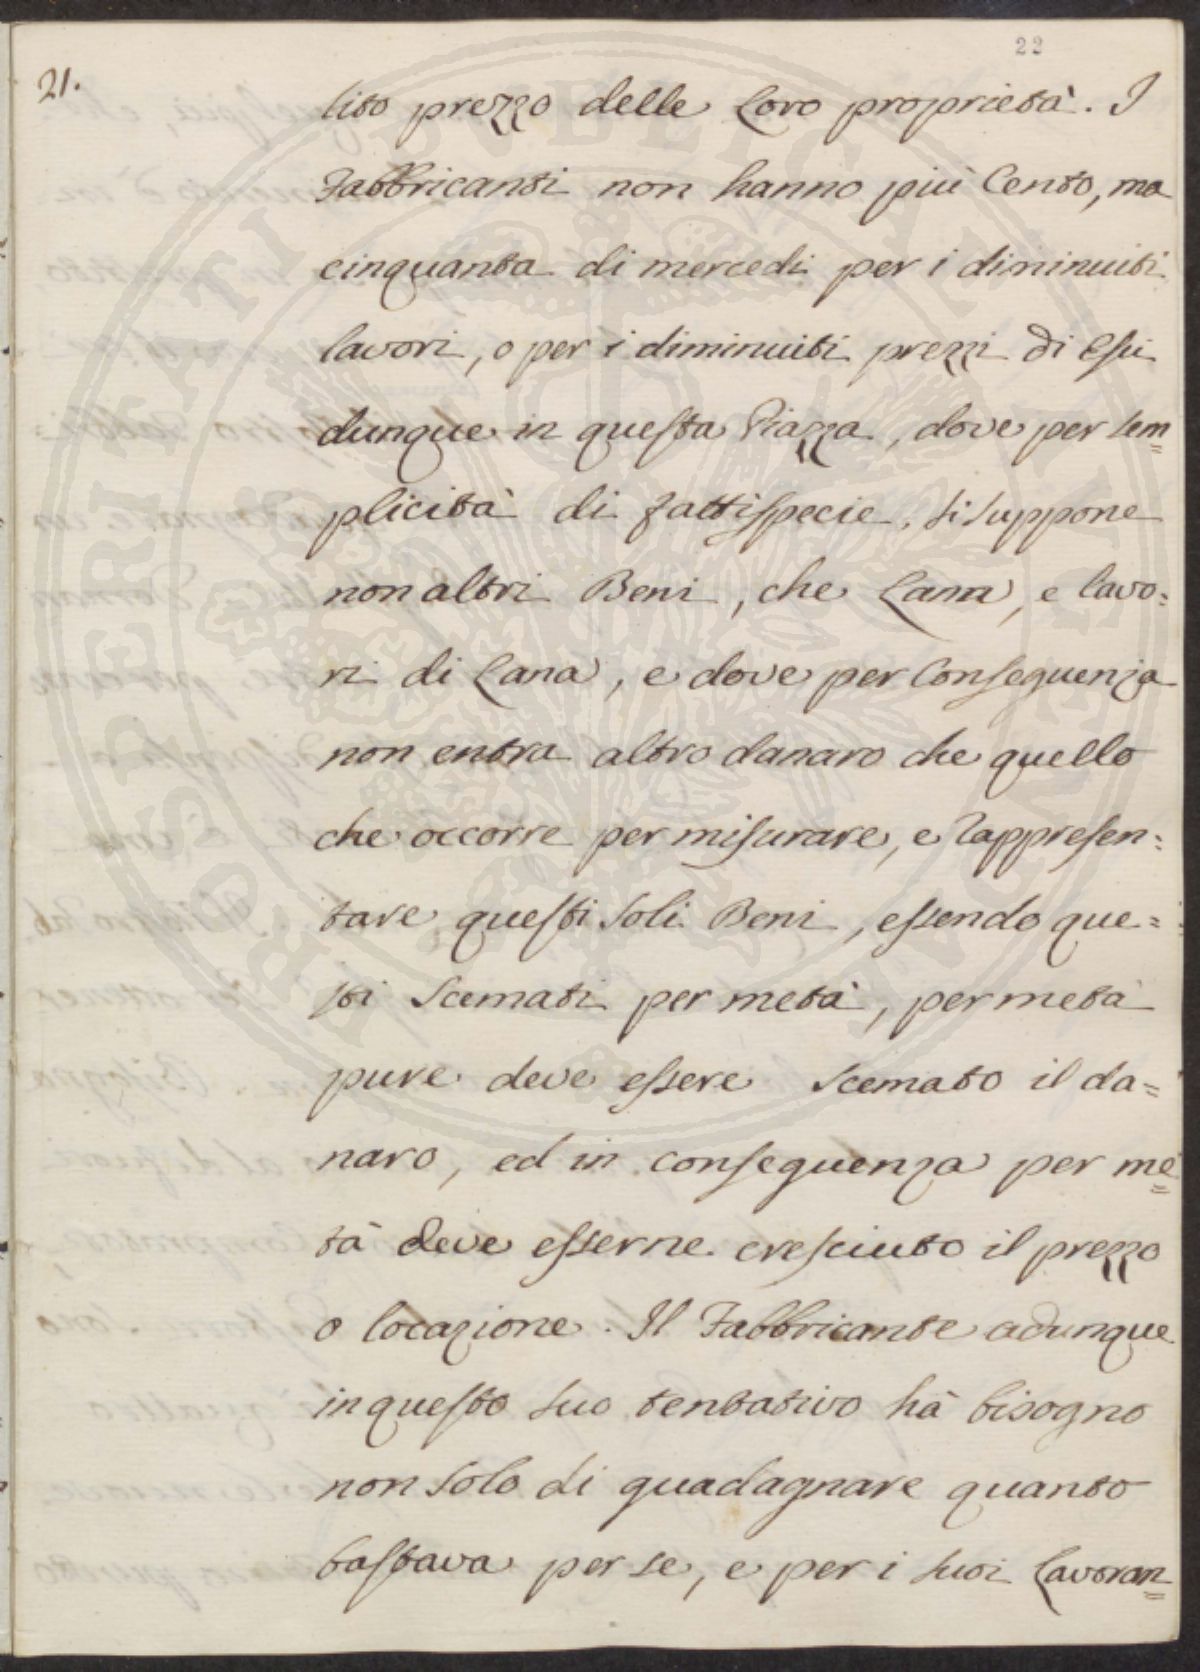 22
21.
lito prezzo delle loro proprietà. I
Fabbricanti non hanno più Cento, ma
cinquanta di mercedi per i diminuiti
lavori, o per i diminuiti prezzi di essi
dunque in questa Piazza, dove per sem=
plicità di fattispecie, si suppone
non altri Beni, che Lana, e lavo=
ri di Lana, e dove per Conseguenza
non entra altro danaro che quello
che occorre per misurare, e rappresen=
tare questi soli Beni, essendo que=
sti Scemati per metà, per metà
pure deve essere Scemato il da=
naro, ed in conseguenza per me=
tà deve esserne cresciuto il prezzo
o locazione. Il Fabbricante adunque
in questo suo tentativo hà bisogno
non solo di guadagnare quanto
bastava per se, e per i suoi Lavoran=
PROSPERITATI PUBLICAE